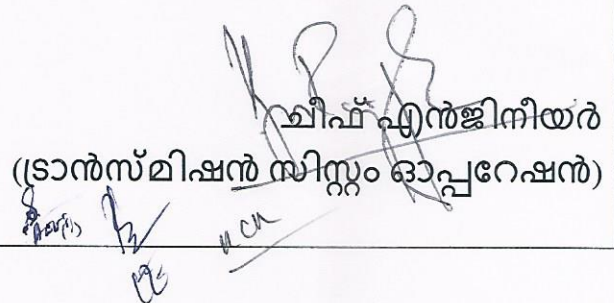 ചീഫ് എൻജിനീയർ
(ട്രാൻസ്മിഷൻ സിസ്റ്റം ഓപ്പറേഷൻ)